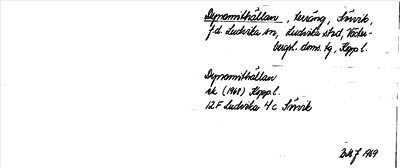 Dynamithällan, terräng, Sörvik,
f.d. Ludvika sn, Ludvika stad, Väster-
bergsl. doms. tg, Kopp.l.
Dynamithällan
ek (1968) Kopp.l.
12F Ludvika 4c Sörvik
1969